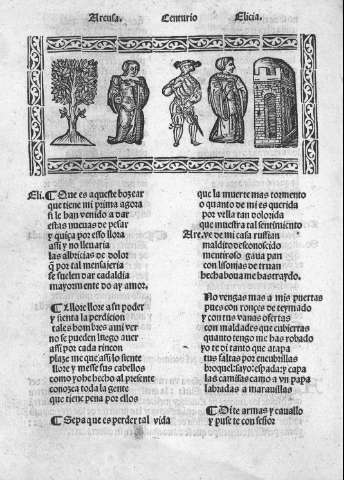 Areusa. Centurio Elicia.
Eli. ¶ Que es aqueste bozear
que tiene mi prima agora
si le han venido a dar
estas nueuas de pesar
y quiça por esso llora
assi y no lleuaria
las albricias de dolor
q̃ por tal mensajeria
se suelen dar cadaldia
mayormente do ay amor.
¶ Llore llore a su poder
y sienta la perdicion
tales hombres a mi ver
no se pueden luego auer
assi por cada rincon
plaze me que assi lo siente
llore y messe sus cabellos
como yo he hecho al presente
conozca toda la gente
que tiene pena por ellos
¶ Sepa que es perder tal vida
que la muerte mas tormento
o quanto de mi es querida
por vella tan dolorida
que muestra tal sentimiento
Are. ve de mi casa rufian
maldito desconoscido
mentiroso gana pan
con lisonjas de truan
hecha boua me has traydo.
No vengas mas a mis puertas
pues con ronçes de
y con tus vanas ofertas
con maldades que cubiertas
quanto tengo me has robado
yo te di tanto que atapa
tus faltas por encubrillas
broquel: sayo: espada: y capa
las camisas camo a vn papa
labradas a marauillas
¶ Dite armas y cauallo
y puse te con señor